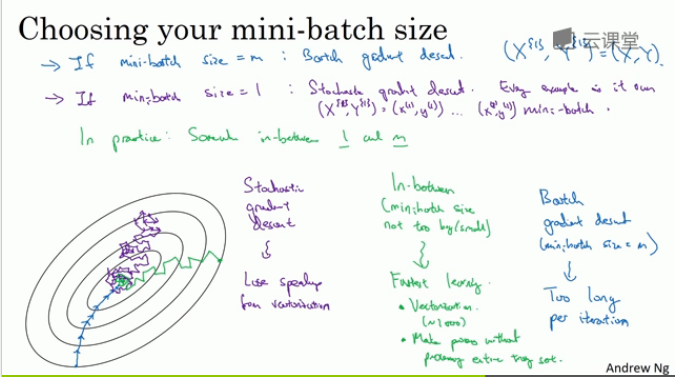 Choosing your mini-batch size
→ If mini-batch size = m : Batch gradient descent. (X^{1}, Y^{1}) = (X, Y).
云课堂
→ If mini-batch size = 1 : Stochastic gradient descent. Every example is it own
(X^{1}, Y^{1}) = (x^(1), y^(1)) ... mini-batch.
In practice: Somewhere in-between 1 and m
Stochastic
gradient
descent
Lose speedup
from vectorization
In-between
(mini-batch size
not too big/small)
Fastest learning.
• Vectorization.
(~1000)
• Make progress without
processing entire training set.
Batch
gradient descent
(mini-batch size = m)
Too long
per iteration
Andrew Ng